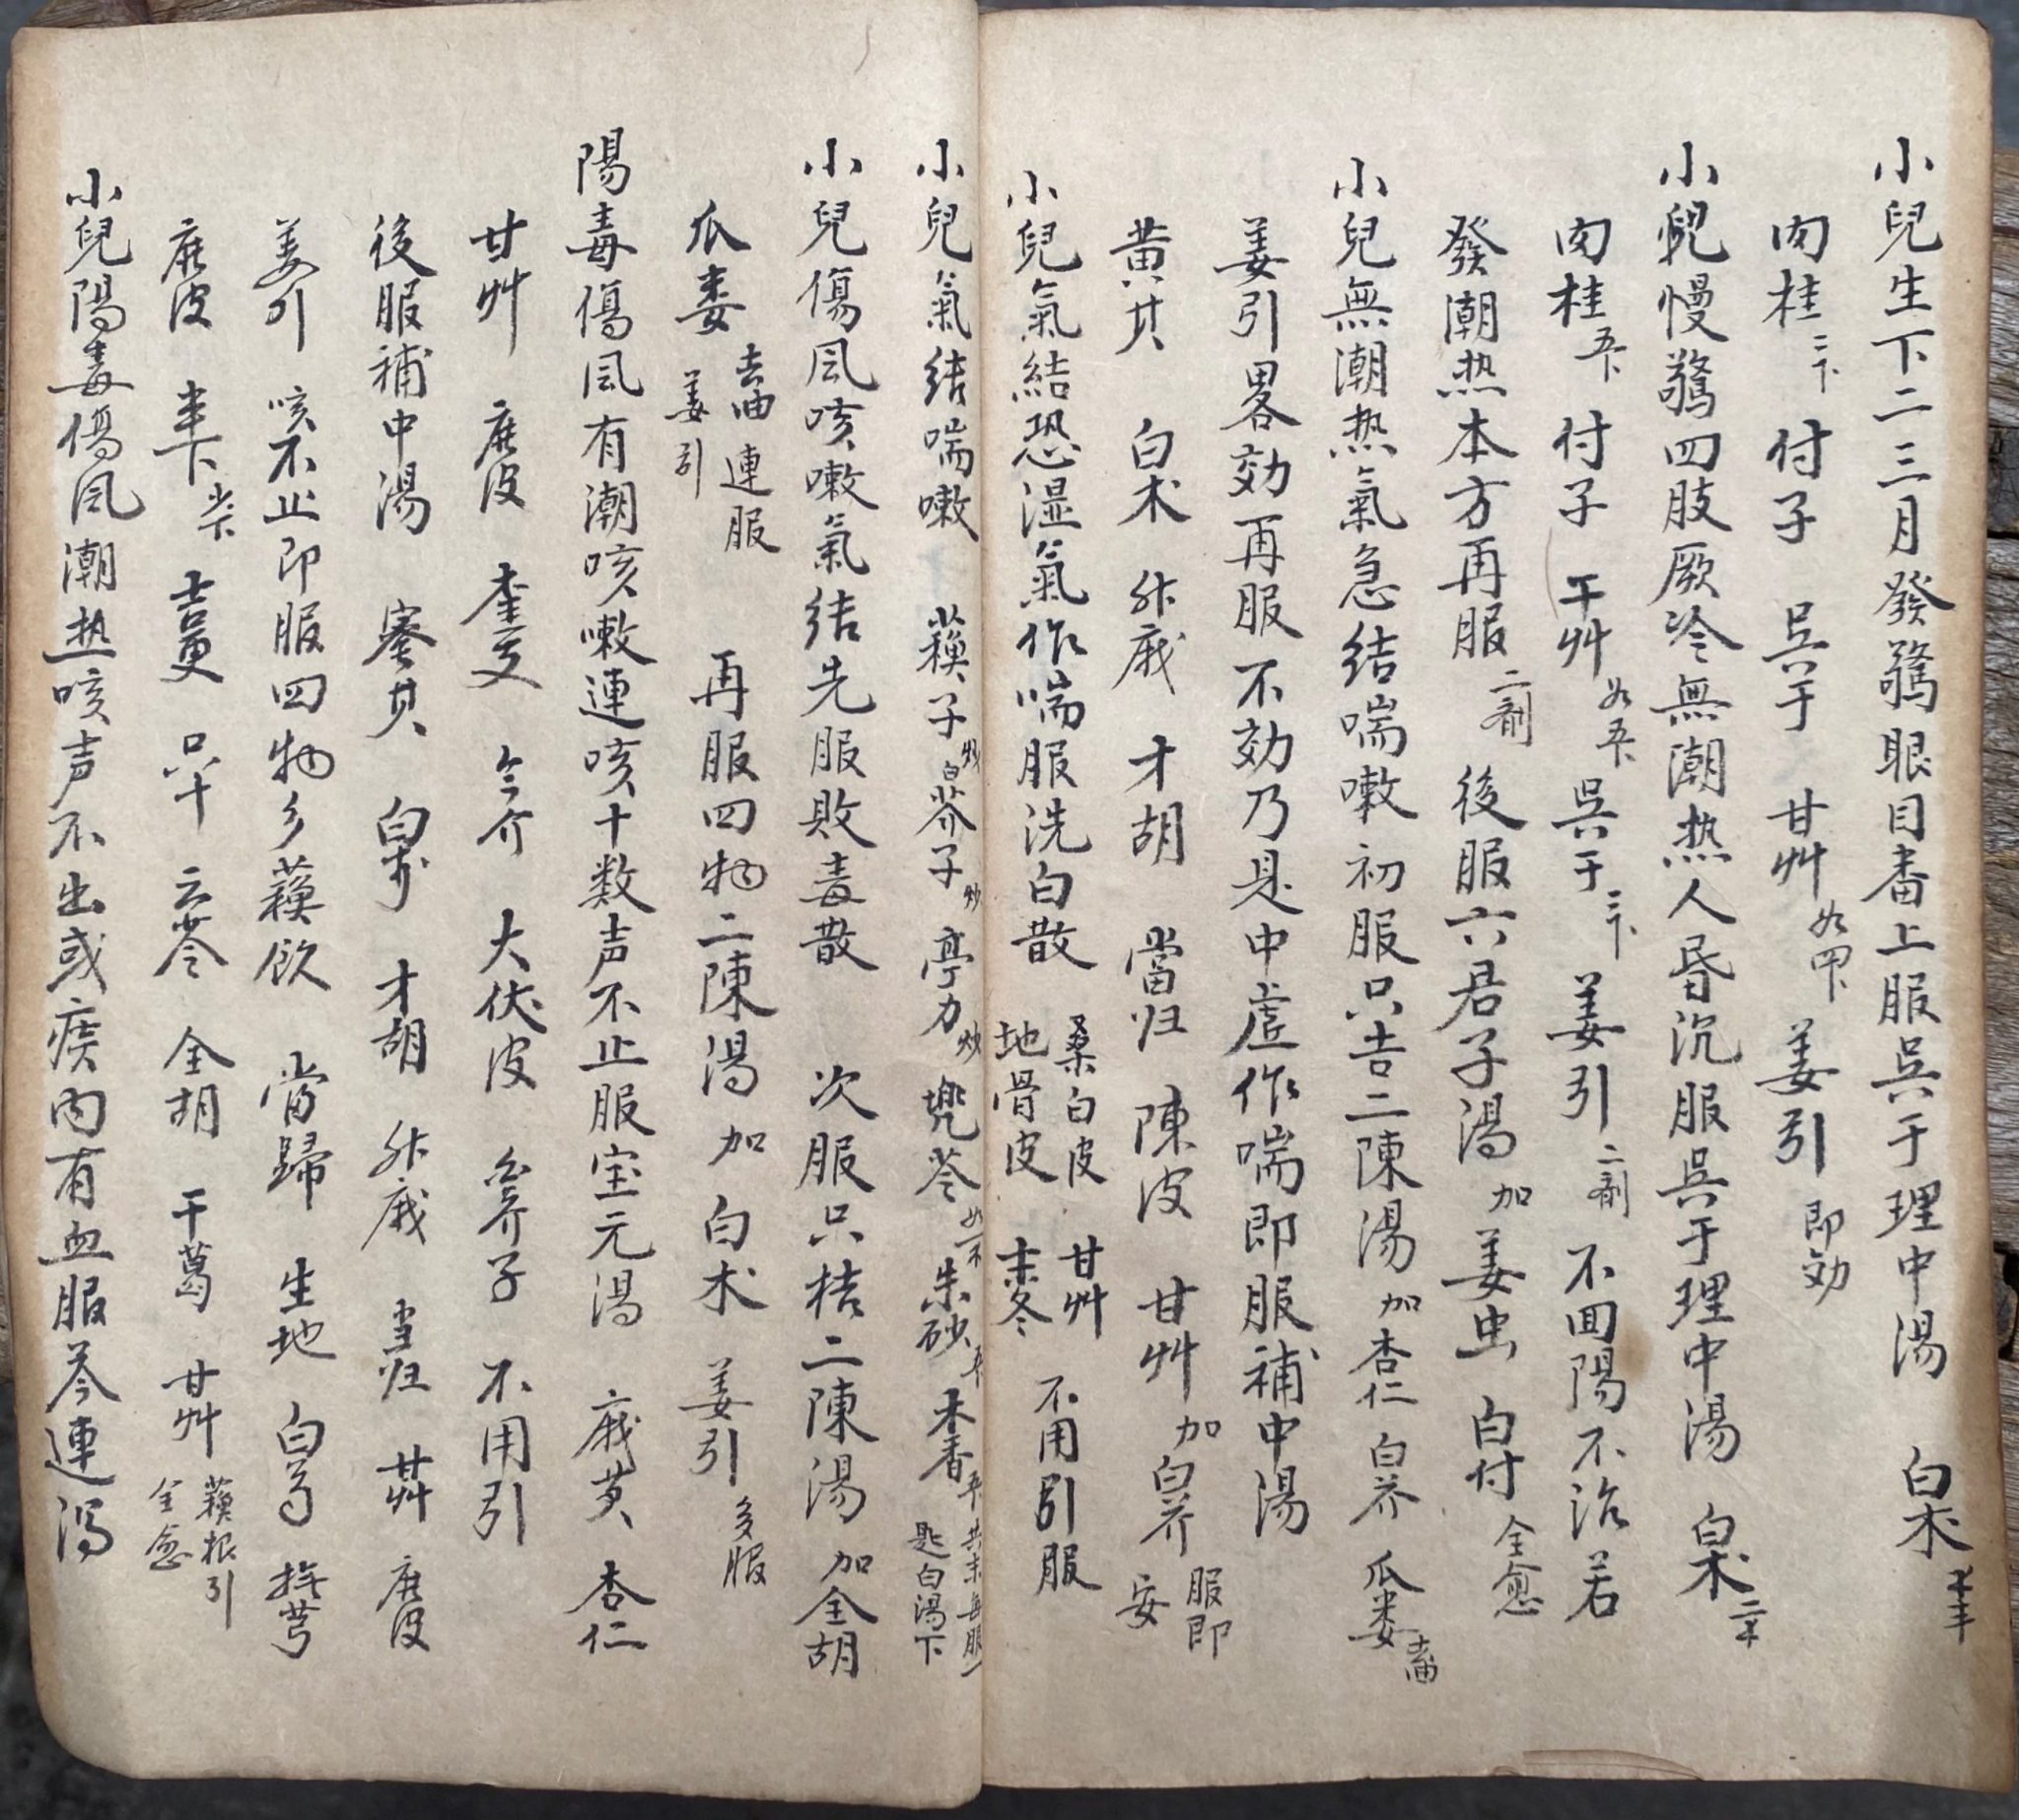 小兒生下二三月發驚眼目番上服吳于理中湯　白术
肉桂 二卜 付子　吳于　甘艸 姜引 即効
小兒慢驚四肢厥冷無潮热人昏沉服吳于理中湯　白术
肉桂 付子　干艸 吳于 三卜 姜引 二劑 不回陽不治若
發潮热本方再服 二劑 後服六君子湯 加 姜虫　白付 全愈
小兒無潮热氣急结喘嗽初服只吉二陳湯 加 杏仁 白芥 瓜娄 去油
姜引畧効再服不効乃是中虚作喘即服補中湯
黄芪　白术　升 才胡　當归　陳皮　甘艸 加 白芥 服即安
小兒氣結恐湿氣作喘服洗白散 桑白皮 地骨皮 甘艸 麦冬 不用引服
小兒氣结喘嗽　蘓子 炒 白芥子 炒 亭力 炒 兜苓 朱砂 木香 共末每服一匙白湯下
小兒傷風咳嗽氣结先服敗毒散　次服只桔二陳湯 加 全胡
瓜娄 去油 姜引 連服 再服四物二陳湯 加 白术　姜引 多服
陽毒傷风有潮咳嗽連咳十数声不止服宝元湯　杏仁
甘艸 大伏皮 芥子　不用引
後服補中湯 才胡 升 當归 甘艸
姜引　咳不止即服四物参蘓飲　當歸　生地　白芍 撫芎
吉更　只十　云苓　全胡　干葛　甘艸 蘓根引 全愈
小兒陽毒傷风潮热咳声不出或痰内有血服芩連湯